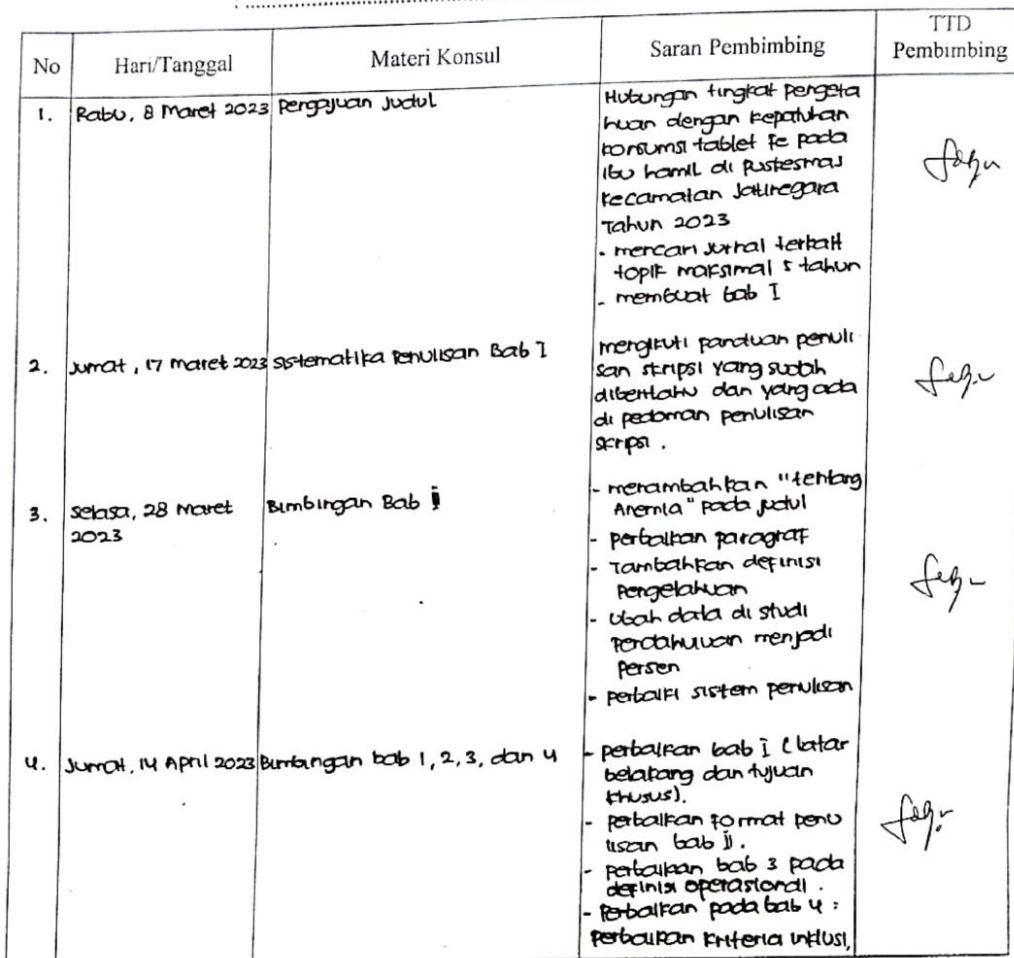 No
Hari/Tanggal
Materi Konsul
Saran Pembimbing
TTD
Pembimbing
1.
Rabu, 8 Maret 2023
Pengajuan Judul
Hubungan tingkat pengeta
huan dengan kepatuhan
konsumsi tablet Fe pada
ibu hamil di Puskesmas
Kecamatan Jatinegara
Tahun 2023
- mencari jurnal terkait
topik maksimal 5 tahun
- membuat bab I
2.
Jumat, 17 Maret 2023
Sistematika Penulisan Bab I
mengikuti panduan penuli
san skripsi yang sudah
diberitahu dan yang ada
di pedoman penulisan
skripsi.
3.
Selasa, 28 Maret
2023
Bimbingan Bab i
- menambahkan "tentang
Anemia" pada judul
- perbaikan paragraf
- Tambahkan definisi
Pengetahuan
- Ubah data di studi
Pendahuluan menjadi
Persen
- perbaiki sistem penulisan
4.
Jumat, 14 April 2023
Bimbingan bab 1, 2, 3, dan 4
- perbaikan bab i (latar
belakang dan tujuan
khusus).
- perbaikan format penu
lisan bab ii.
- perbaikan bab 3 pada
definisi operasional.
- Perbaikan pada bab 4 :
perbaikan kriteria inklusi,